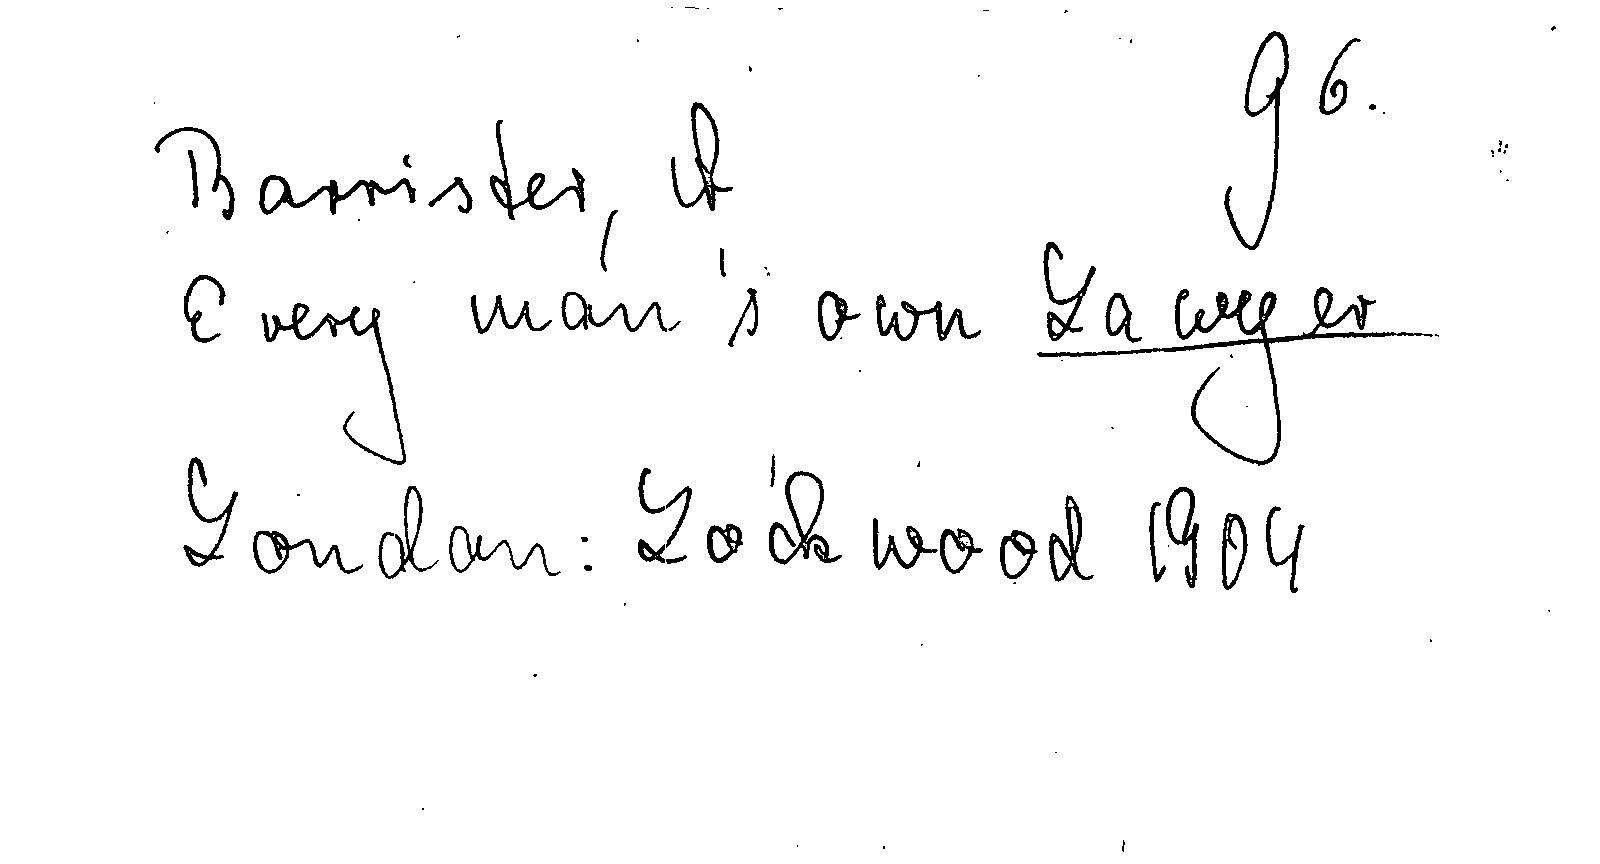 g 6.
Barrister, A
Every man's own Lawyer
London: Lockwood 1904